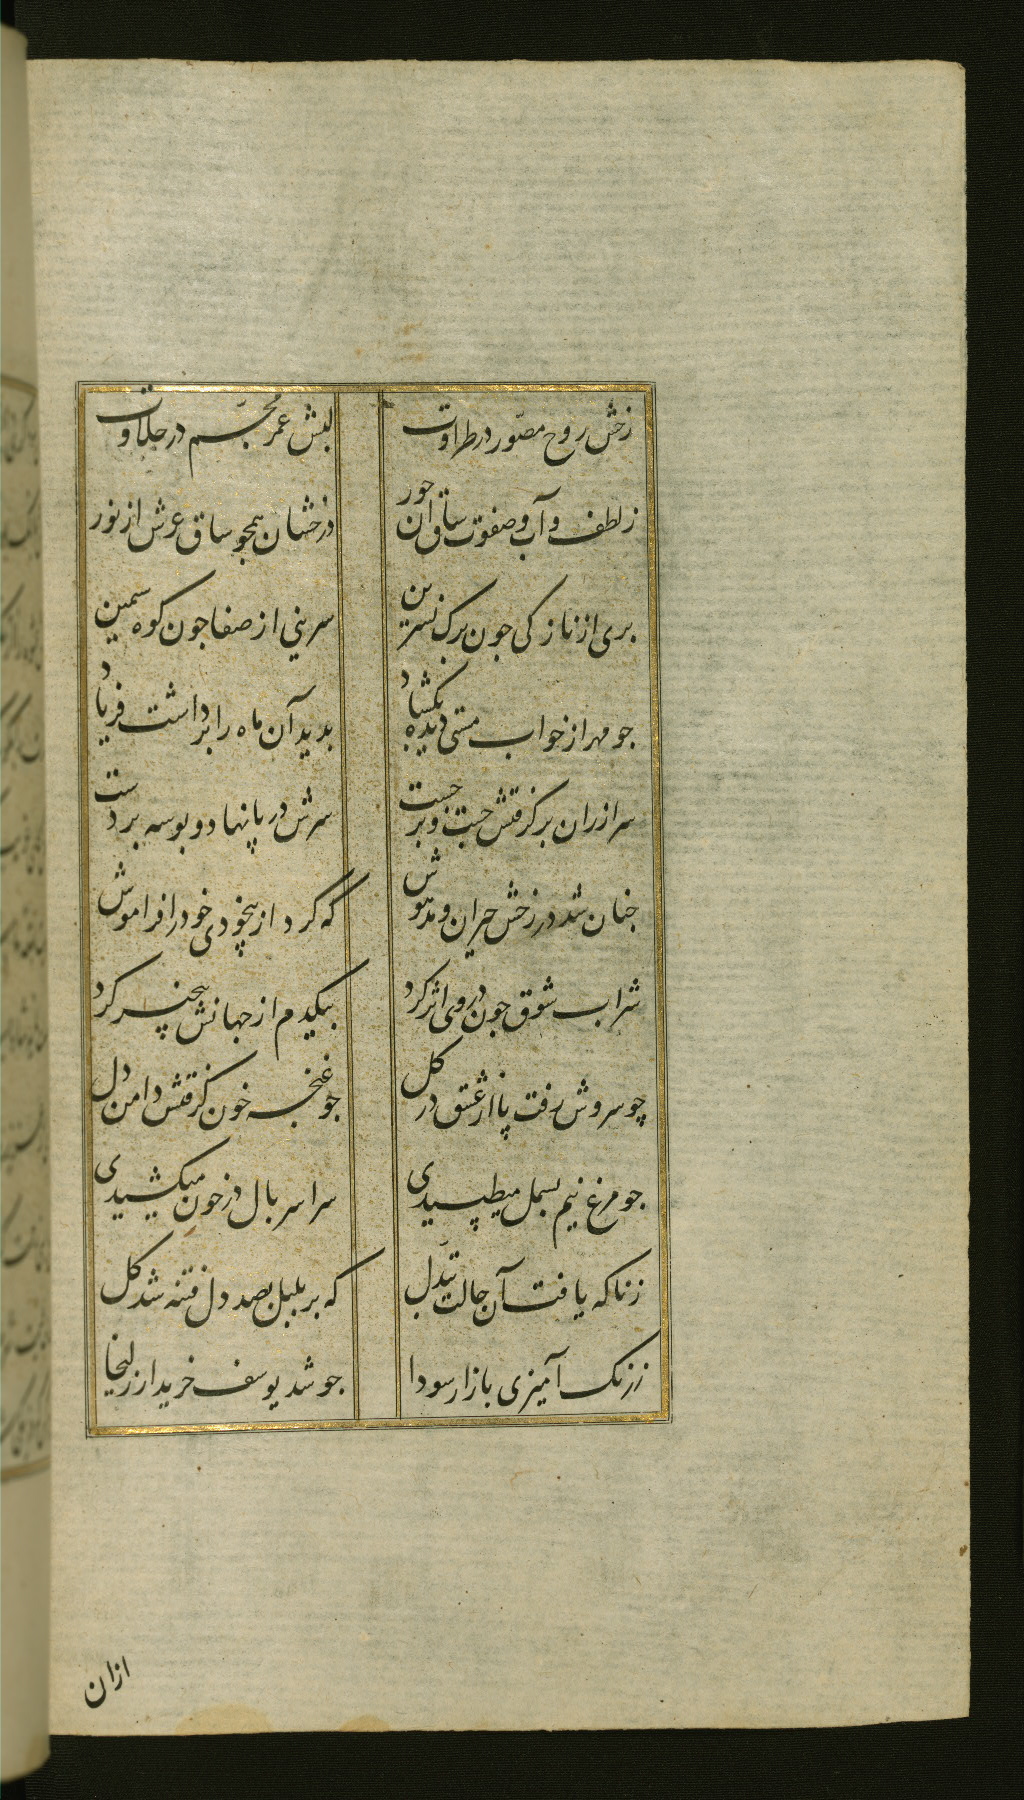 رخش روح مصّور در طراوت
لبش عمر مجسّم در حلاوت
ز لطف و آب و صفوت ساق آن حور
درخشان همچو ساق عرش از نور
بری از نازکی جون برک نسرین
سرینی از صفا جون کوه سیمین
جو مهر از خواب مستی دیده بکشاد
بدید آن ماه را برداشت فریاد
سر از ران برکرفتش جست و برجست
سرش در پا نهاد و بوسه بر دست
جنان شد در رخش حیران و مدهوش
که کرد از بیخودی خود را فراموش
شراب شوق جون در وی اثر کرد
بیکدم از جهانش بیخبر کرد
چو سروش رفت پا از عشق در کل
جو غنجه خون کرفتش دامن دل
جو مرغ نیم بسمل میطپیدی
سراسر بال در خون میکشیدی
زناکه یافت آن حالت تبّدل
که بر بلبل بصد دل فتنه شد کل
ز رنک آمیزی بازار سودا
جو شد یوسف خریدار زلیخا
ازان